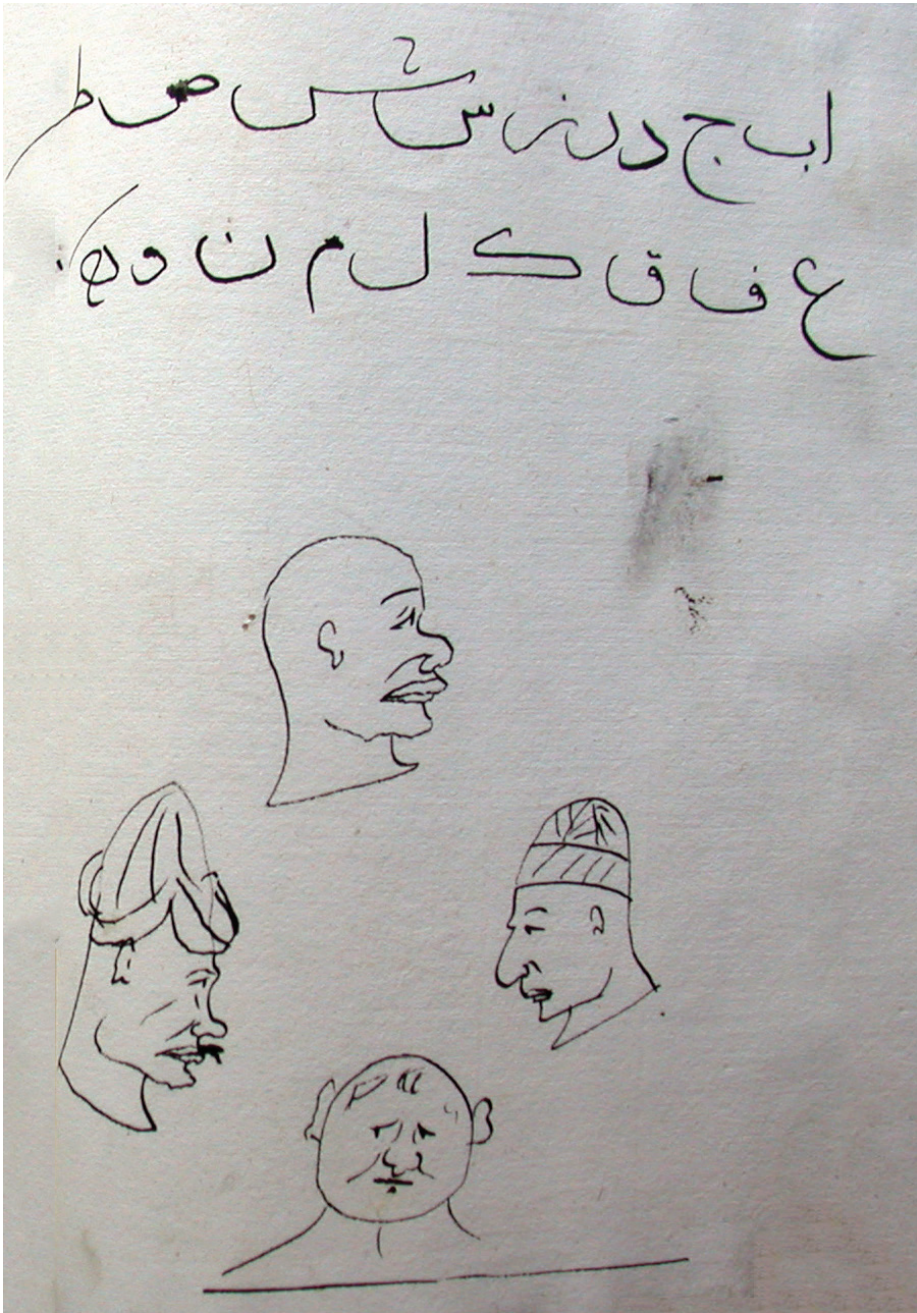 ا ب ج د ر ز س ش ص ط
ع ف ق ک ل م ن و ه